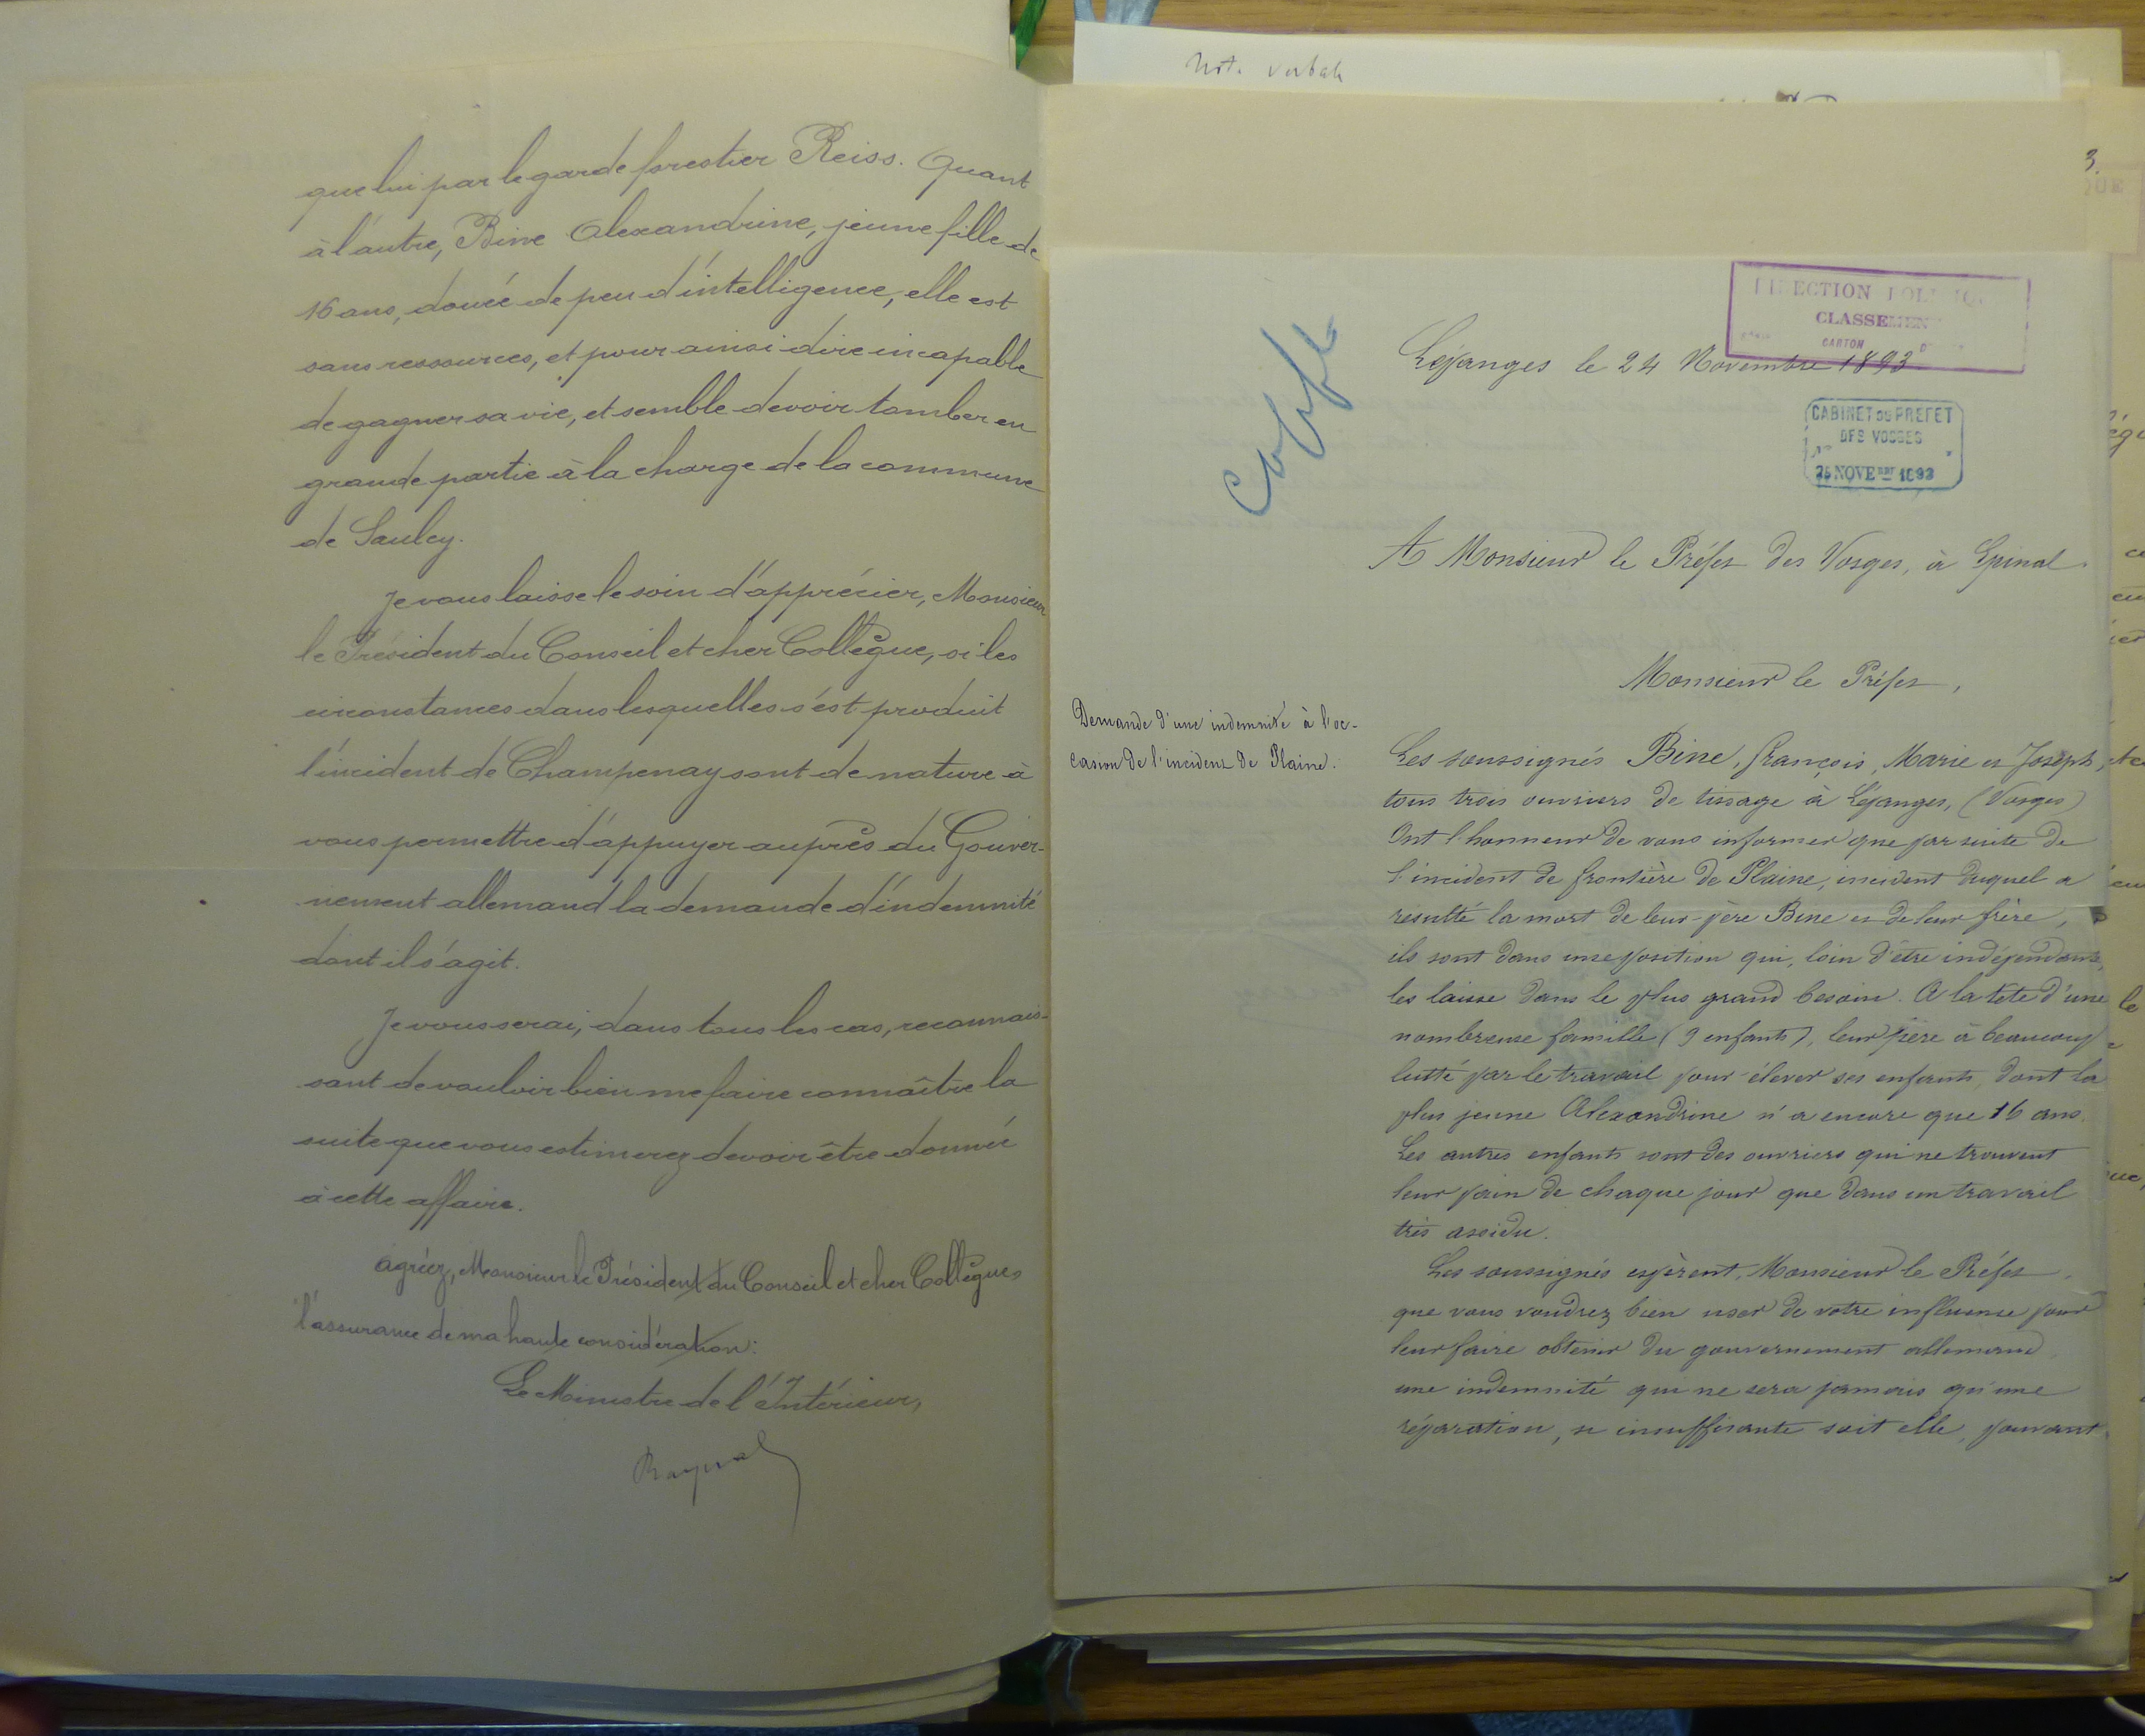 que lui par le garde forestier Reiss. Quant
à l'autre, Bine Alexandrine, jeune fille de
16 ans, douée de peu d'intelligence, elle est
sans ressources, et pour ainsi dire incapable
de gagner sa vie, et semble devoir tomber en
grande partie à la charge de la commune
de Saulcy.
Je vous laisse le soin d'apprécier, Monsieur
le Président du Conseil et cher Collègue, si les
circonstances dans lesquelles s'est produit
l'incident de Champenay sont de nature à
vous permettre d'appuyer auprès du Gouver-
nement allemand la demande d'indemnité
dont il s'agit.
Je vous serai, dans tous les cas, reconnais-
sant de vouloir bien me faire connaître la
suite que vous estimerez devoir être donnée
à cette affaire.
Agréez, Monsieur le Président du Conseil et cher Collègue,
l'assurance de ma haute considération.
Le Ministre de l'Intérieur,
Raynal
Note verbale
3.
DIRECTION POLITIQUE
CLASSEMENT
CARTON
Copie
Léjanges le 24 Novembre 1893
CABINET DU PREFET
DES VOSGES
25 NOVEBRE 1893
A Monsieur le Préfet des Vosges, à Epinal.
Monsieur le Préfet,
Demande d'une indemnité à l'oc-
casion de l'incident de Plaine.
Les soussignés Bine, François, Marie et Joseph,
tous trois ouvriers de tissage à Léjanges, (Vosges)
Ont l'honneur de vous informer que par suite de
l'incident de frontière de Plaine, incident duquel a
résulté la mort de leur père Bine et de leur frère,
ils sont dans une position qui, loin d'être indépendante,
les laisse dans le plus grand besoin. A la tête d'une
nombreuse famille (9 enfants), leur père à beaucoup
lutté par le travail pour élever ses enfants, dont la
plus jeune Alexandrine n'a encore que 16 ans.
Les autres enfants sont des ouvriers qui ne trouvent
leur pain de chaque jour que dans un travail
très assidu.
Les soussignés espèrent, Monsieur le Préfet,
que vous voudrez bien user de votre influence pour
leur faire obtenir du gouvernement allemand
une indemnité qui ne sera jamais qu'une
réparation, si insuffisante soit elle, pouvant